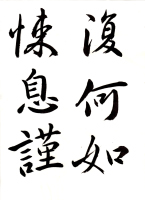 復何如
悚息謹